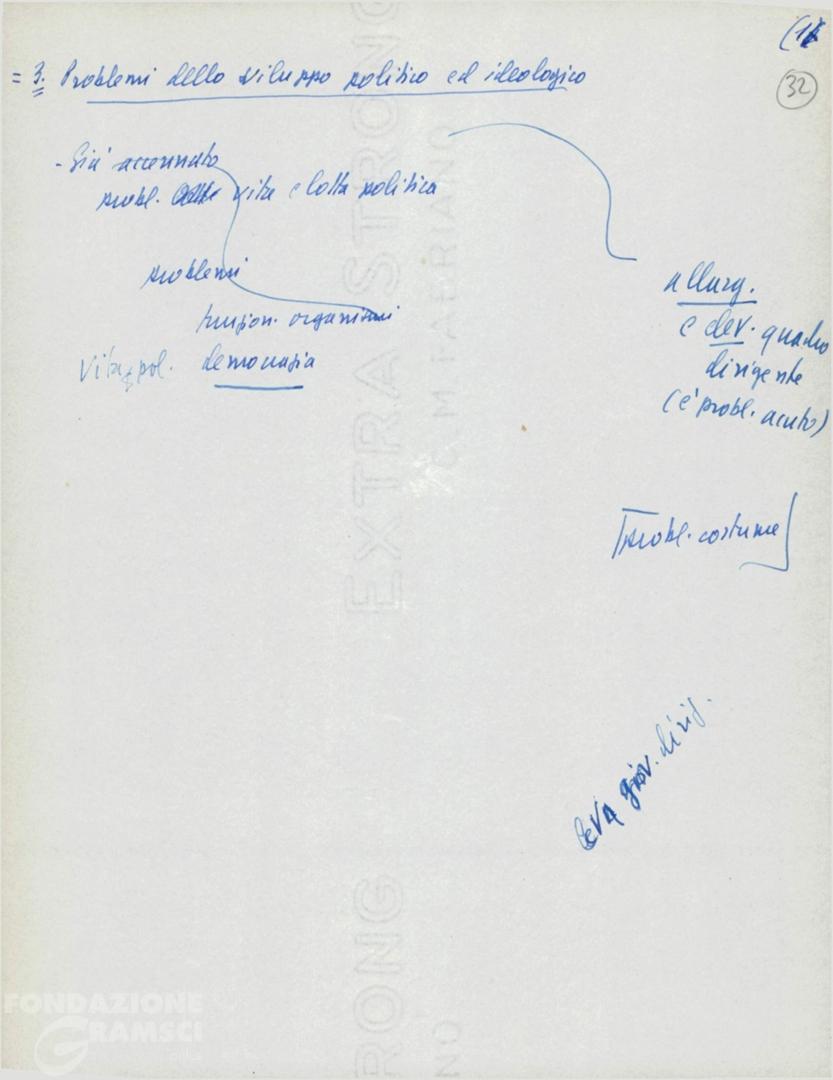 (11
32
= 3. Problemi dello sviluppo politico ed ideologico
- Già accennato
probl. della vita e lotta politica
problemi
funzion. organismi
Vita pol. democrazia
allarg.
e elev. quadro
dirigente
(è probl. acuto)
probl. costume
leva giov. dirig.
EXTRA STRONG
C. M. FABRIANO
RONG
NO
FONDAZIONE
GRAMSCI